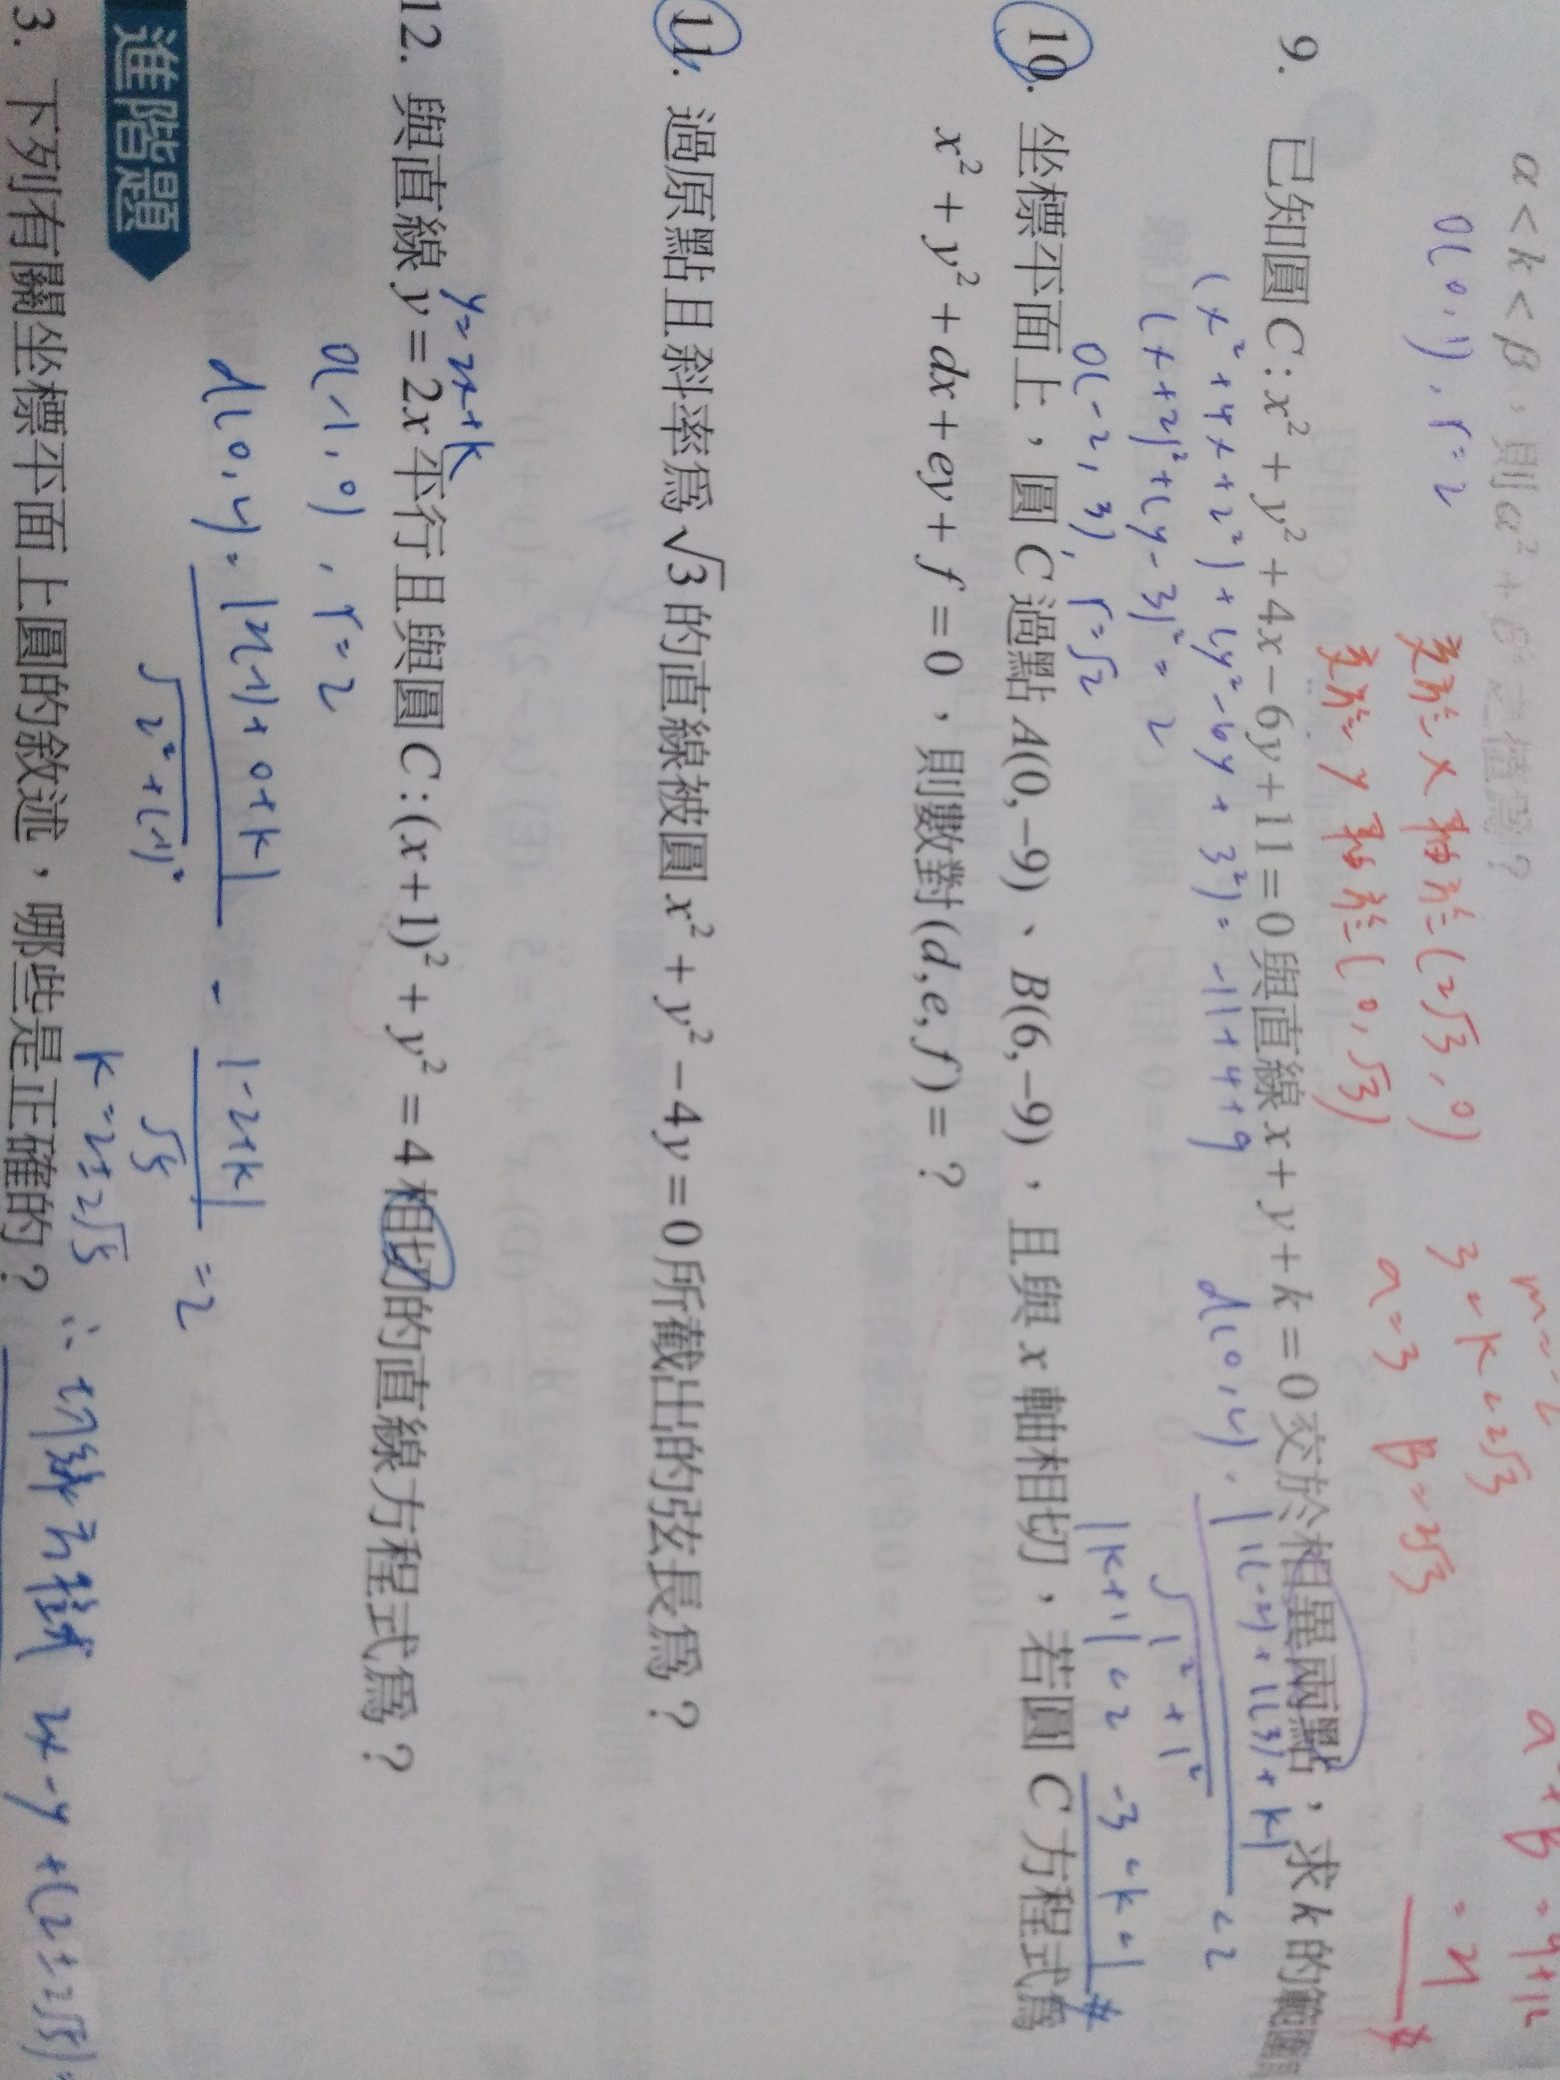 m=-2
α<k<β,則α²+β²之值為?
a²+B²=9+12
3<k<2√3
O(0,1), r=2
交於x軸於(2√3,0)
a=3 B=2√3
=21
交於y軸於(0,√3)
9. 已知圓C:x²+y²+4x−6y+11=0與直線x+y+k=0交於相異兩點,求k的範圍
(x²+4x+2²)+(y²-6y+3²)=-11+4+9
d(O,L)=|1(-2)+1(3)+k|
√1²+1²
<2
(x+2)²+(y-3)²=2
O(-2,3), r=√2
|k+1|<2
-3<k<1 #
10. 坐標平面上,圓C過點A(0,−9)、B(6,−9),且與x軸相切,若圓C方程式為
x²+y²+dx+ey+f=0,則數對(d,e,f)=?
11. 過原點且斜率為√3的直線被圓x²+y²−4y=0所截出的弦長為?
y=2x+k
12. 與直線y=2x平行且與圓C:(x+1)²+y²=4相切的直線方程式為?
O(-1,0), r=2
d(O,L)=|2(-1)+0+k|
√2²+(-1)²
=|-2+k|
√5
=2
k=2±2√5
∴切線方程式 2x-y+(2±2√5)=
進階題
3. 下列有關坐標平面上圓的敘述,哪些是正確的?